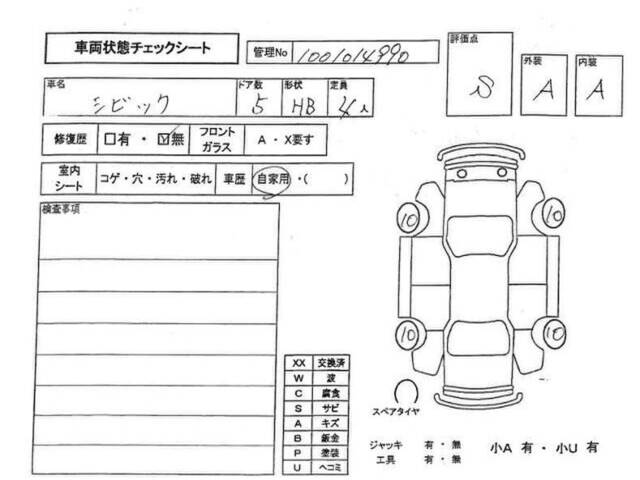 車両状態チェックシート
管理No 1001014990
評価点 S
外装 A
内装 A
車名 シビック
ドア数 5
形状 HB
定員 4人
修復歴 □有・☑無
フロントガラス A・X要す
室内シート コゲ・穴・汚れ・破れ
車歴 自家用・( )
検査事項
10 10
10 10
XX 交換済
W 波
C 腐食
S サビ
A キズ
B 鈑金
P 塗装
U ヘコミ
スペアタイヤ
ジャッキ 有・無
工具 有・無
小A 有・小U 有